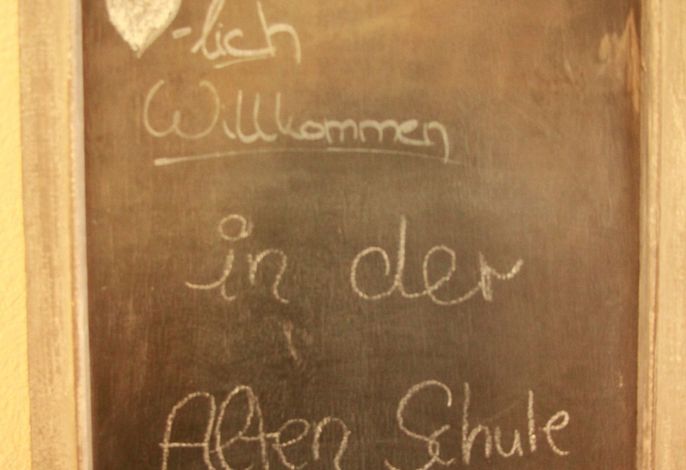 -lich
Willkommen
in der
Alten Schule